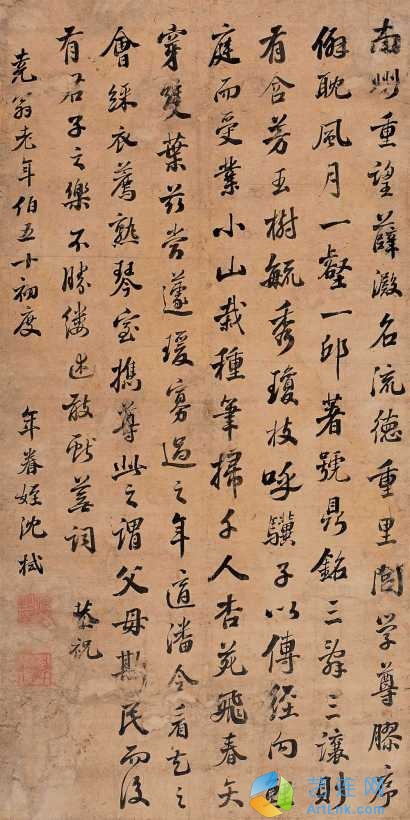 南州重望薜澱名流德重里閭学尊膠序
耽風月一壑一邱著號鼎銘三辭三讓則
有含芳玉樹毓秀瓊枝呼驥子以傳經向鯉
庭而受業小山栽種筆掃千人杏苑飛春矢
穿雙葉茲當蘧瑗寡過之年適潘令看花之
會綵衣薦熟琴室携尊此之謂父母斯民而後
有君子之樂不勝僂述敢獻蕪詞 恭祝
堯翁老年伯五十初度 年眷姪沈拭
艺连网
ArtLink.com